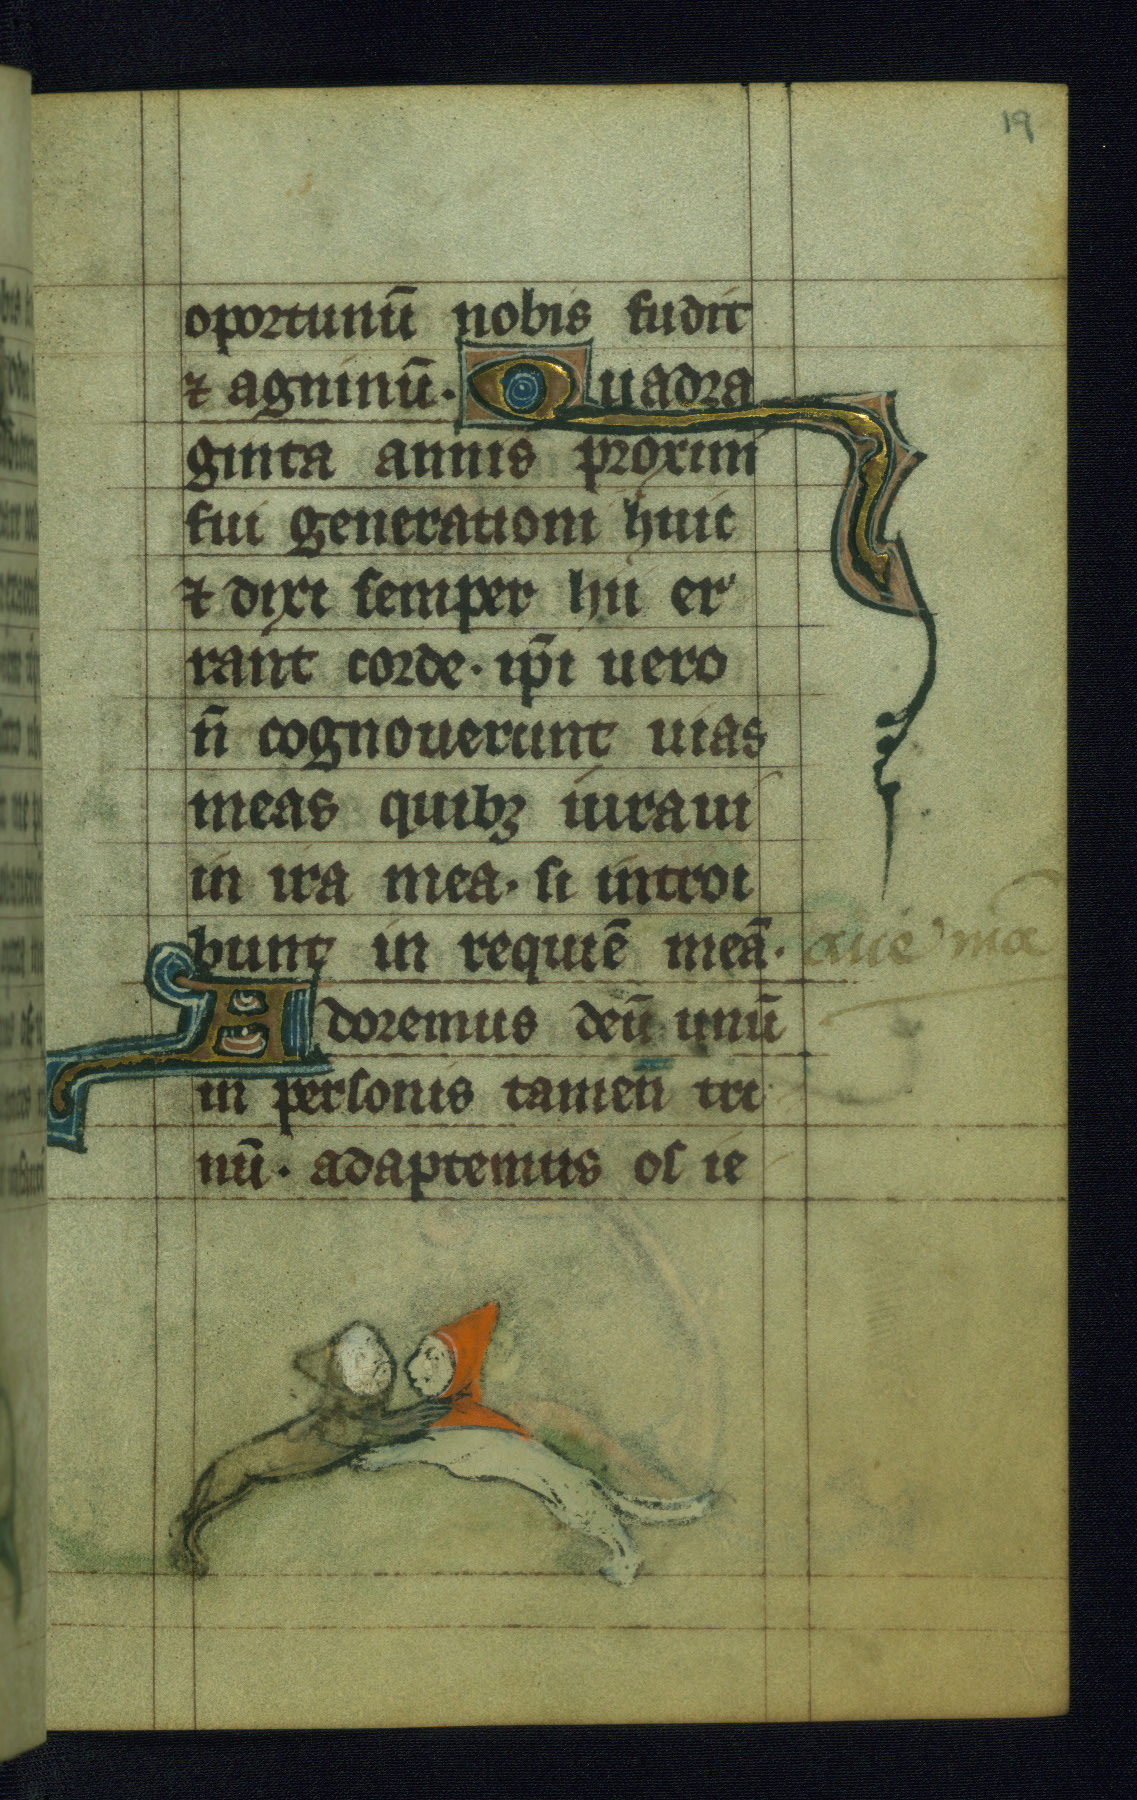 19
oportunū nobis fudit
⁊ agninū. Quadra
ginta annis proximꝰ
fui generationi huic
⁊ dixi semper hii er
rant corde. ip̄i uero
n̄ cognouerunt uias
meas quibꝫ iuraui
in ira mea. si introi
bunt in requiē meā. aue mā
Adoremus deū unū
in personis tamen tri
nū. adaptemus os ie